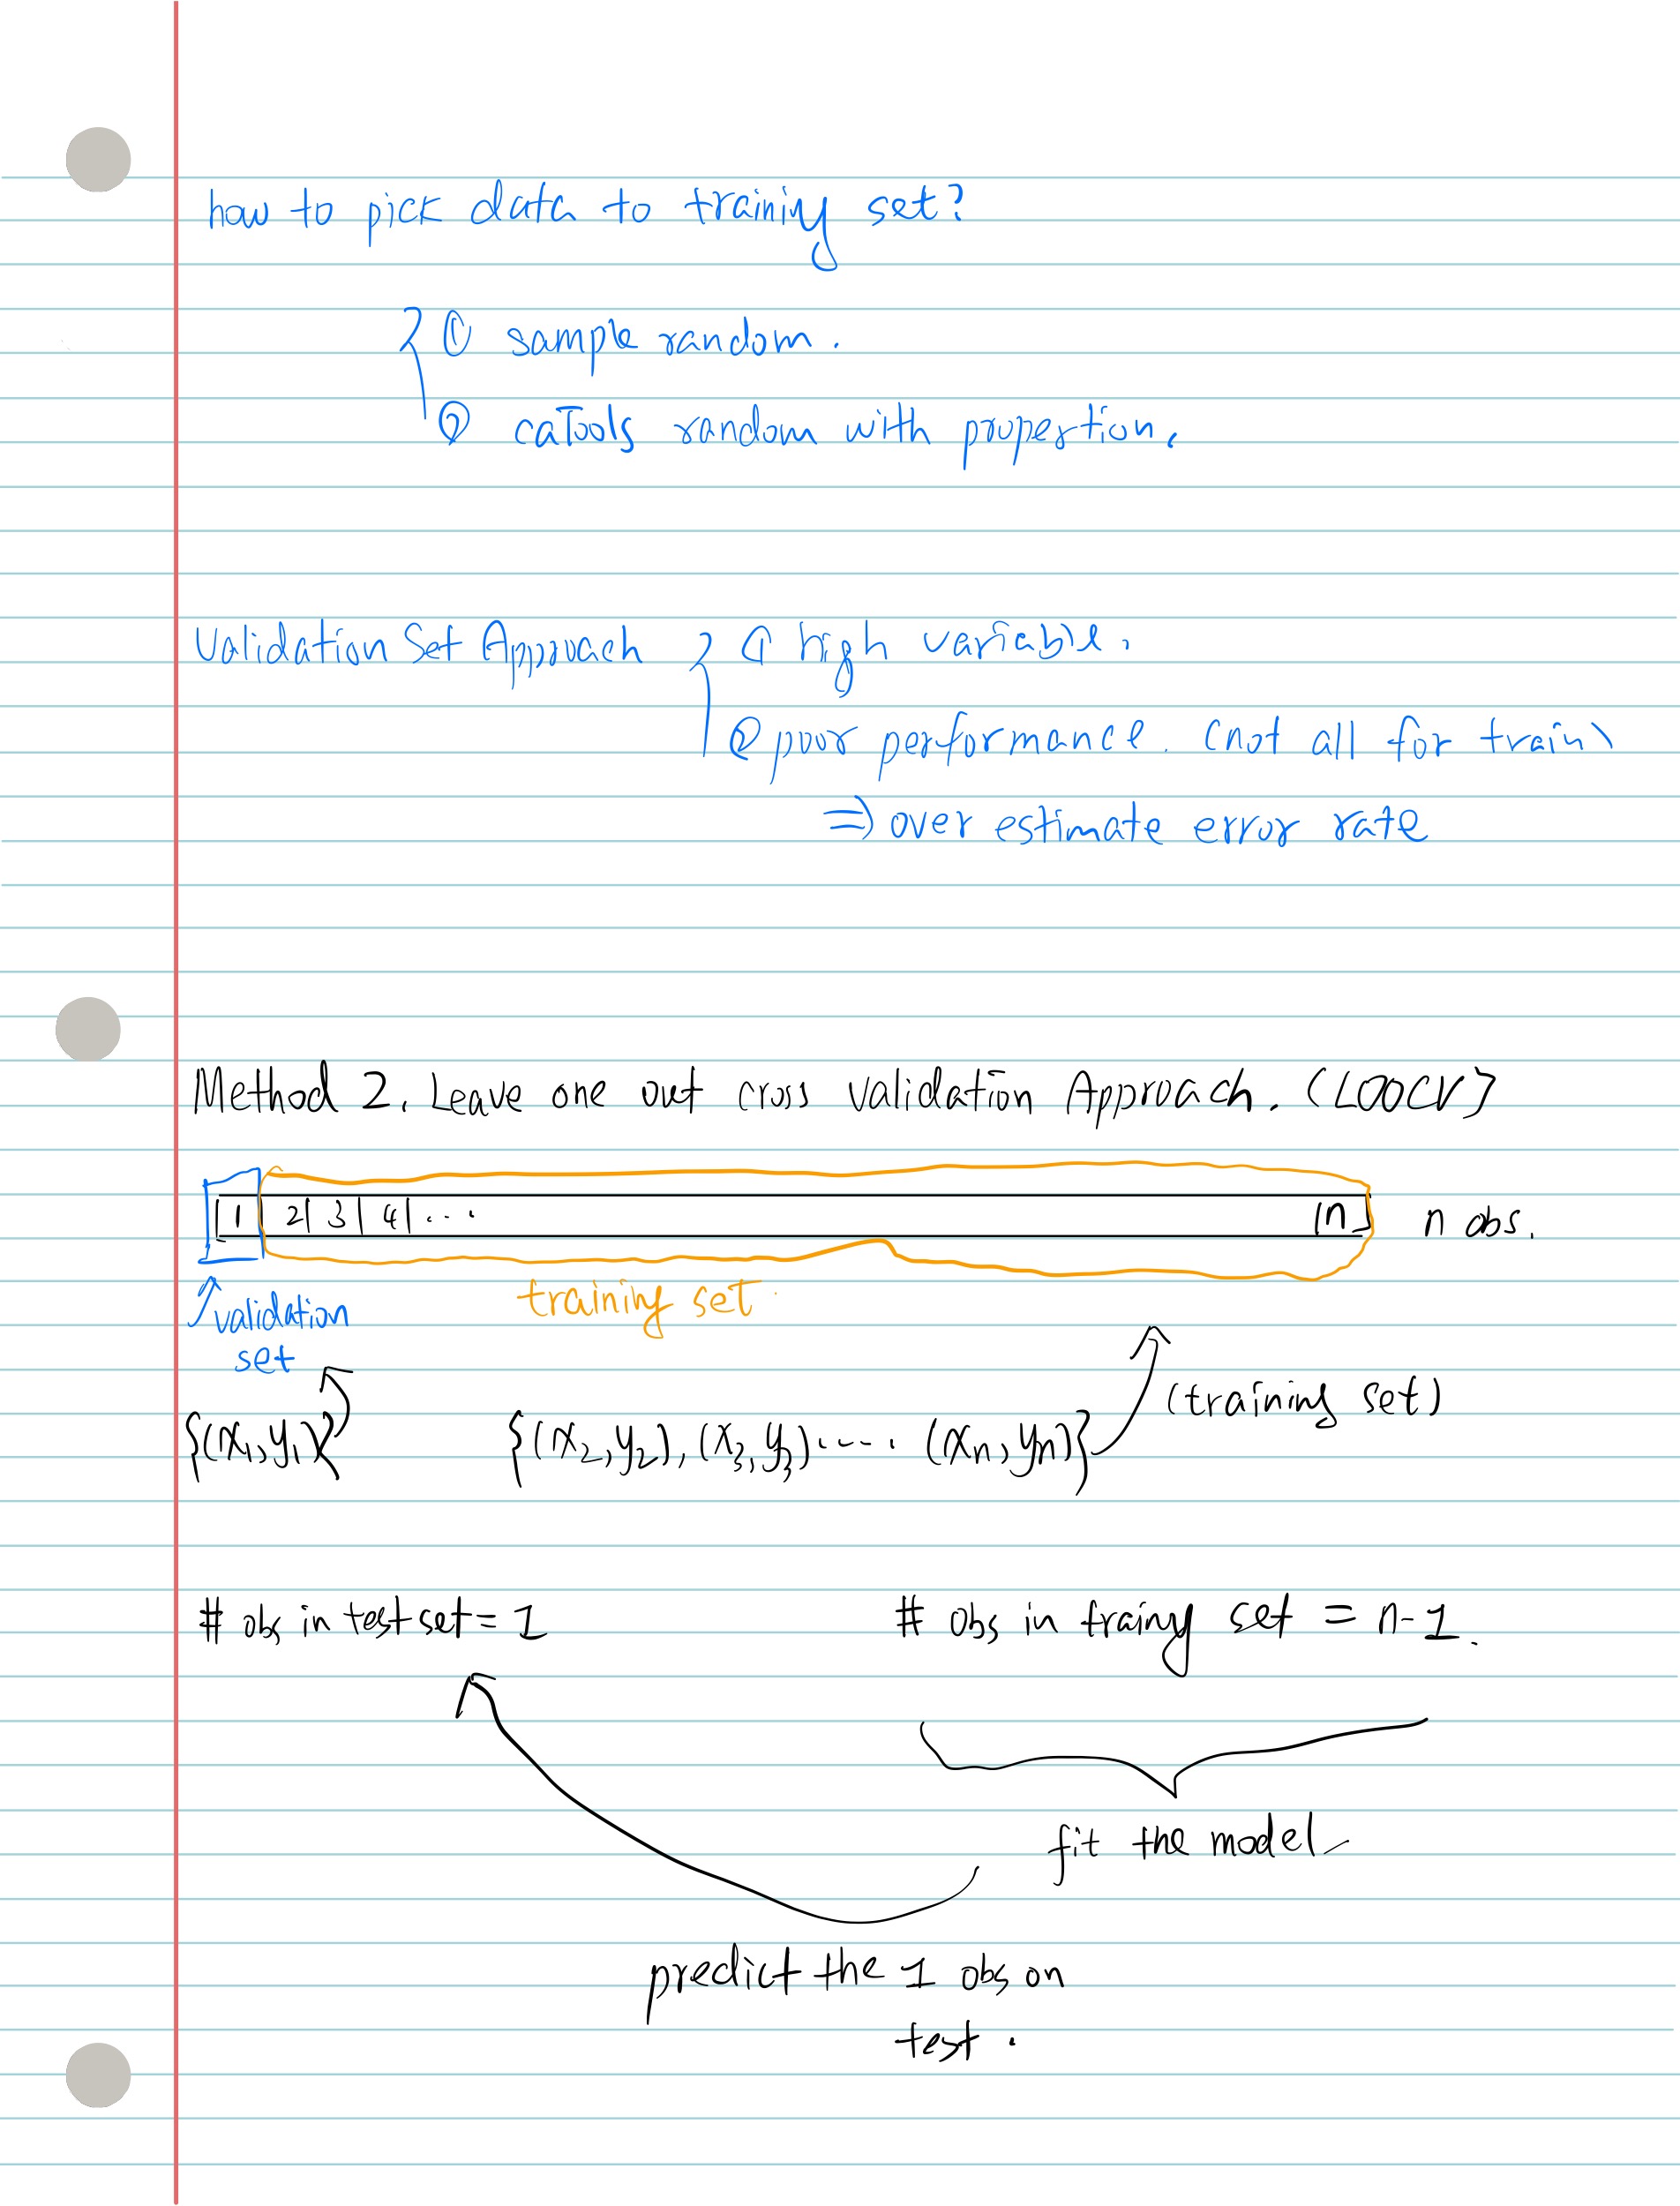 how to pick data to training set?
① sample random.
② caTools random with propertion.
Validation Set Approach ① high variable.
② poor performance. (not all for train)
⇒ over estimate error rate
Method 2. Leave one out cross validation Approach. (LOOCV)
1 2 3 4 ... n n obs.
validation
set
training set.
(training set)
{(x₁,y₁)} {(x₂,y₂),(x₃,y₃)..... (xn,yn)}
# obs in test set = 1 # obs in training set = n-1.
fit the model
predict the 1 obs on
test.